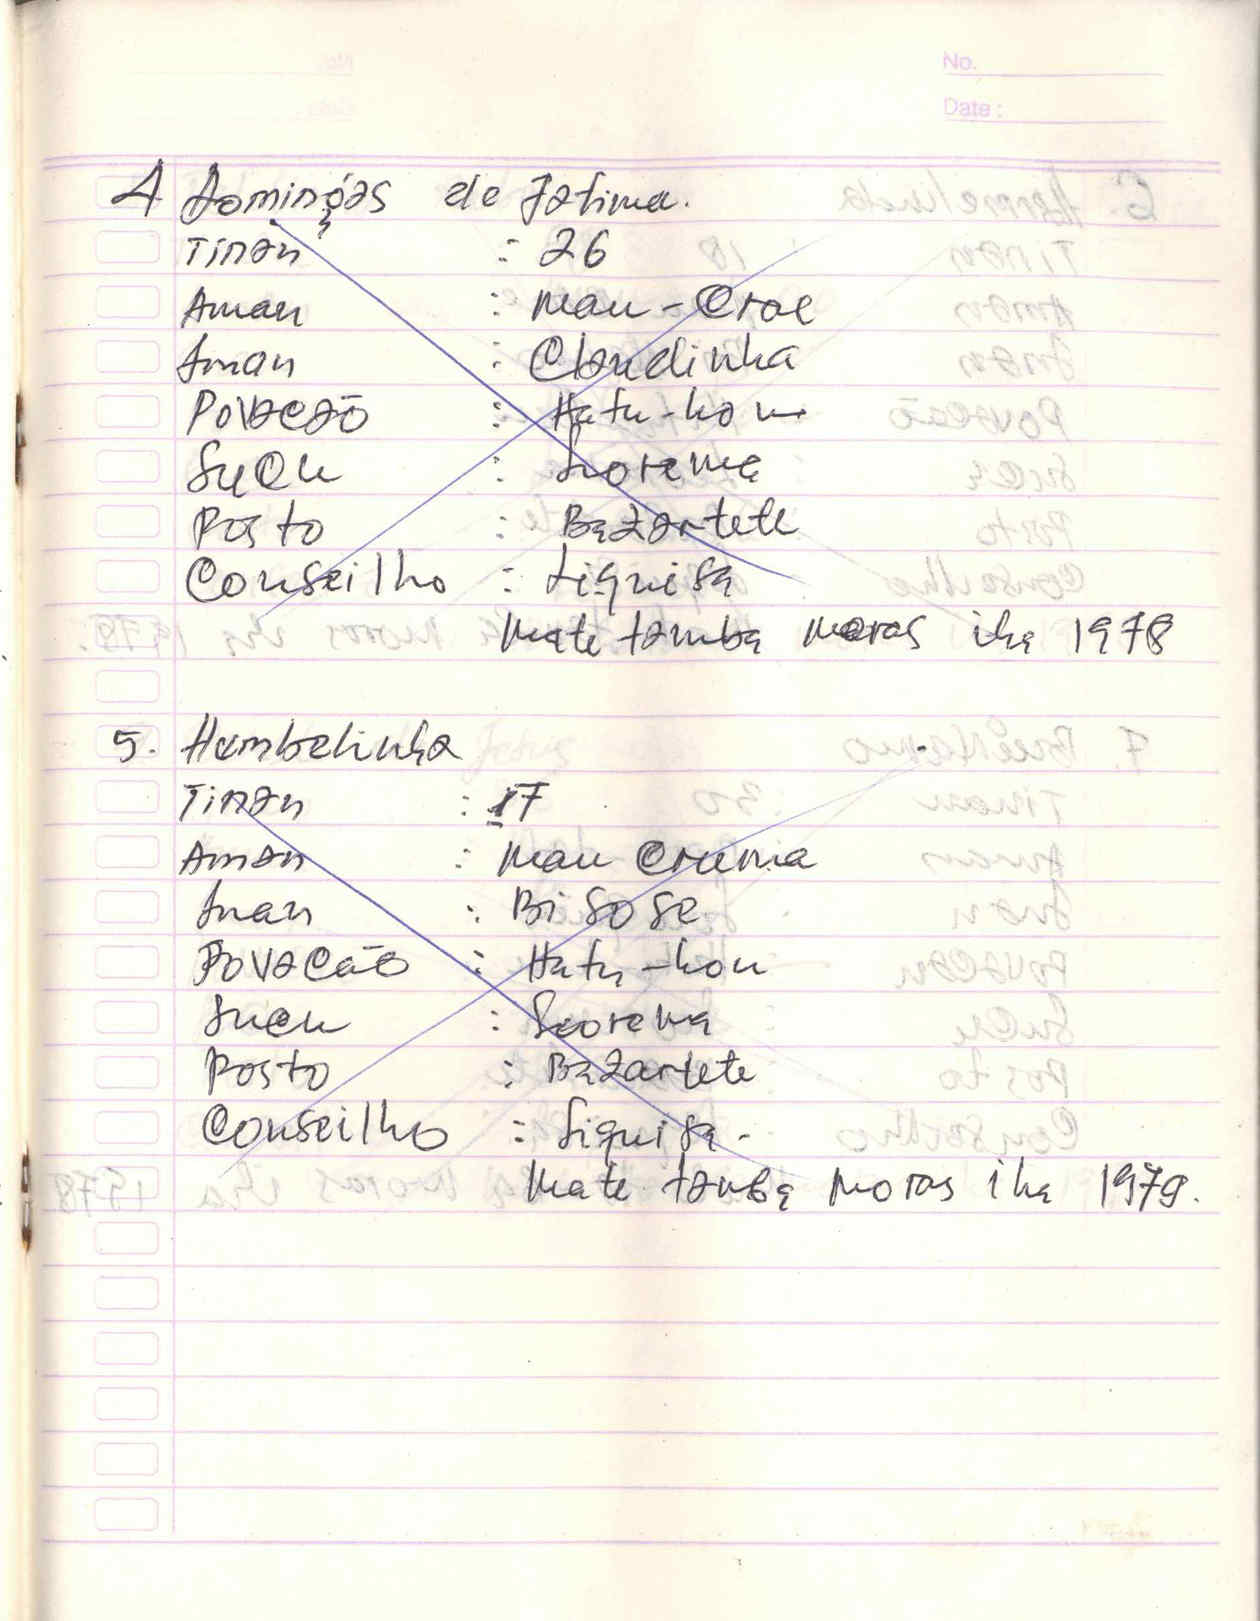 No.
Date :
4 Domingas de Fatima.
Tinan : 26
Aman : Mau-Crae
Inan : Claudinha
Povacão : Hatu-kou
Sucu : Leorema
Posto : Bazartete
Conseilho : Liquisa
Mate tamba moras iha 1978
5. Humbelinha
Tinan : 17
Aman : Mau Cruma
Inan : Bi Sose
Povacão : Hatu-kou
Sucu : Leorema
Posto : Bazartete
Conseilho : Liquisa.
Mate tamba moras iha 1979.